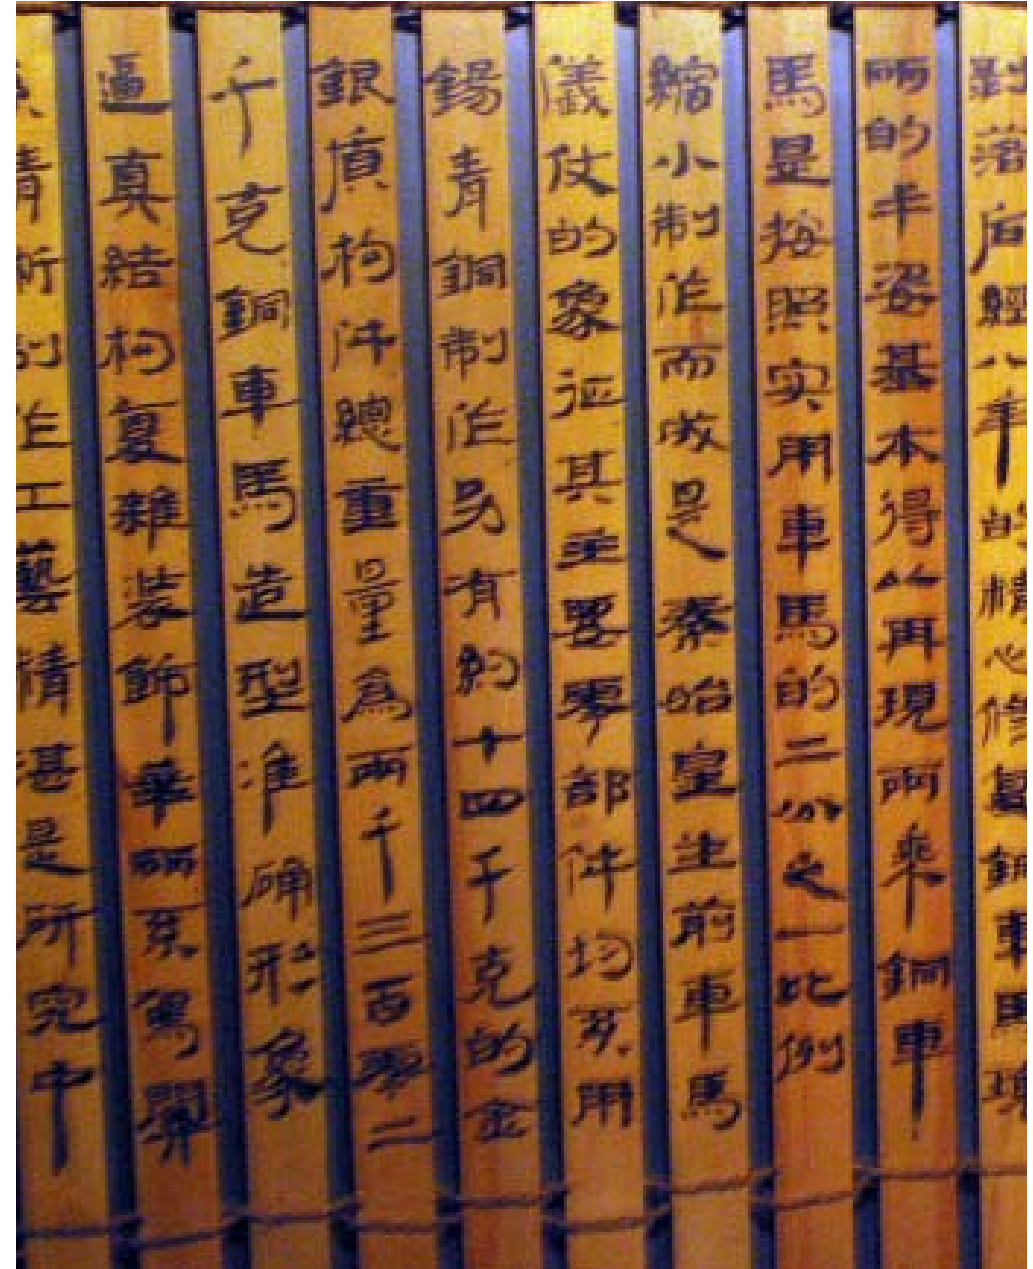 剥落后經八年的精心修复銅車馬瑰
丽的丰姿基本得以再現兩乘銅車
馬是按照实用車馬的二份之一比例
縮小制作而成是秦始皇生前車馬
儀仗的象征其主要零部件均采用
錫青銅制作另有約十四千克的金
銀質构件總重量為兩千三百零二
千克銅車馬造型准确形象
逼真結构复雜装飾華丽系駕關
系清晰制作工藝精湛是研究中